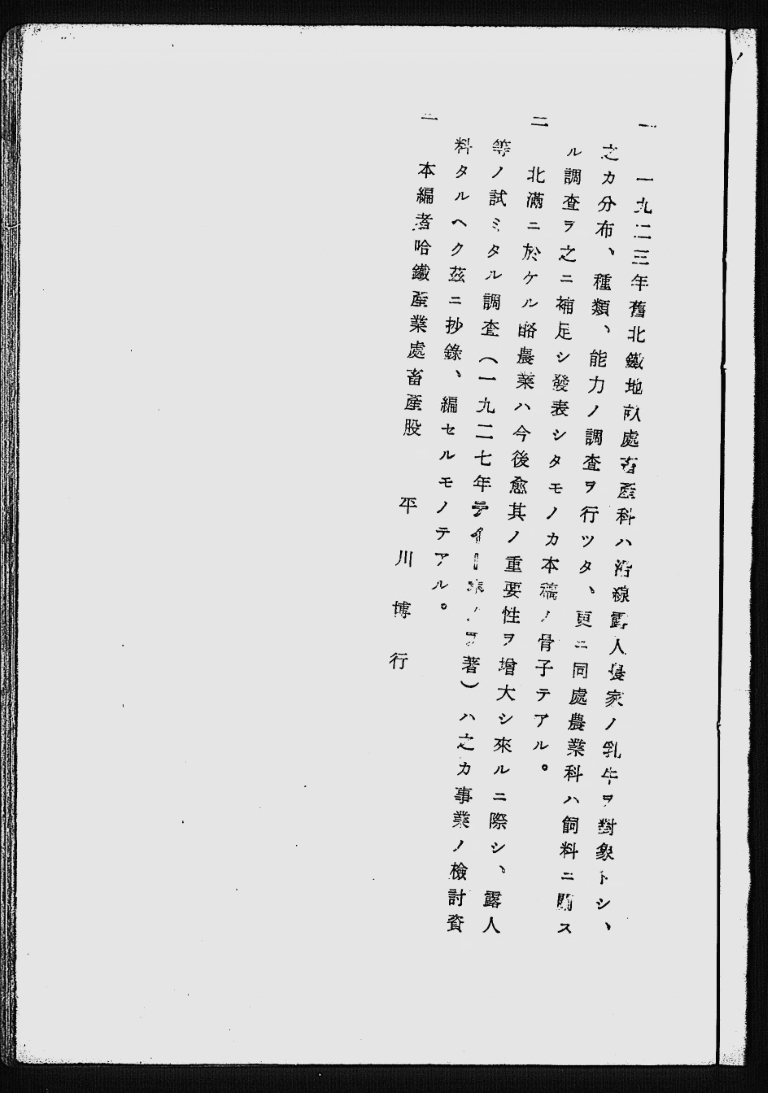 一　一九二三年舊北鐵地畝處畜產科ハ沿線露人農家ノ乳牛ヲ對象トシ、
之カ分布、種類、能力ノ調査ヲ行ツタ、更ニ同處農業科ハ飼料ニ關ス
ル調査ヲ之ニ補足シ發表シタモノカ本稿ノ骨子テアル。
二　北滿ニ於ケル酪農業ハ今後愈其ノ重要性ヲ增大シ來ルニ際シ、露人
等ノ試ミタル調査（一九二七年　著）ハ之カ事業ノ檢討資
料タルヘク茲ニ抄錄、編セルモノテアル。
一　本編者哈鐵產業處畜產股　平川博行